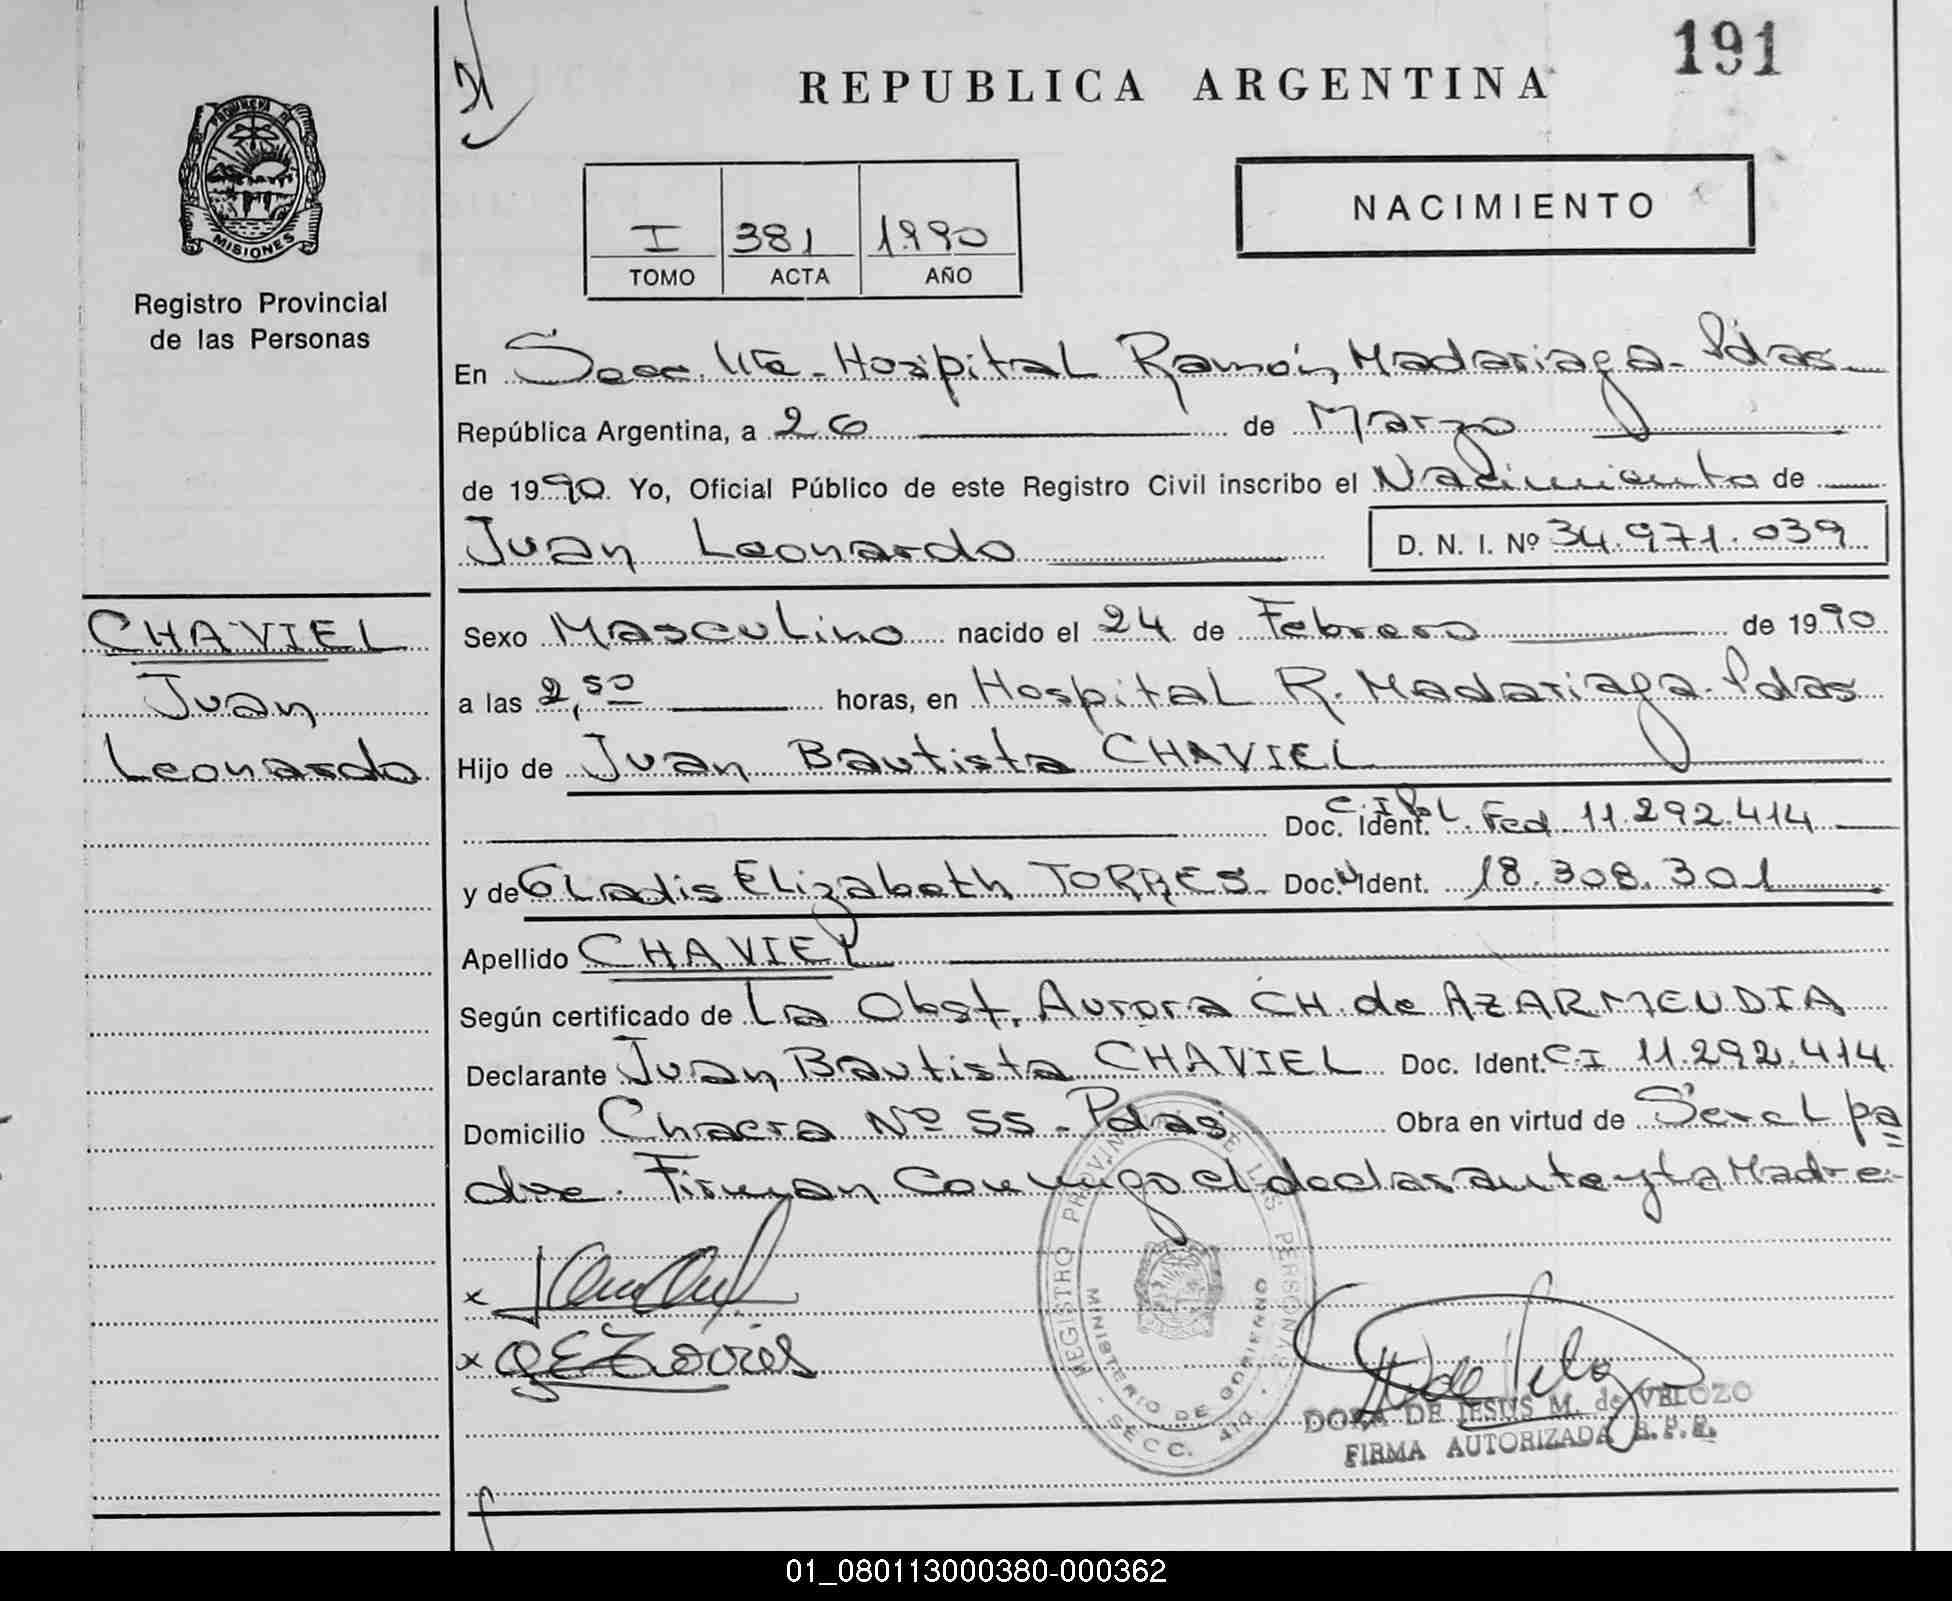 191
REPUBLICA ARGENTINA
NACIMIENTO
I 381 1990
TOMO ACTA AÑO
PROVINCIA DE
MISIONES
Registro Provincial
de las Personas
En Secc. 4ta - Hospital Ramón Madariaga - Pdas
República Argentina, a 26 de Marzo
de 1990 Yo, Oficial Público de este Registro Civil inscribo el Nacimiento de
Juan Leonardo D. N. I. Nº 34.971.039
CHAVIEL
Juan
Leonardo
Sexo Masculino nacido el 24 de Febrero de 1990
a las 2,50 horas, en Hospital R. Madariaga - Pdas
Hijo de Juan Bautista CHAVIEL
Doc. Ident. C.I. Pol. Fed. 11.292.414
y de Gladis Elizabeth TORRES Doc. Ident. 18.308.301
Apellido CHAVIEL
Según certificado de La Obst. Aurora CH. de AZARMENDIA
Declarante Juan Bautista CHAVIEL Doc. Ident. C.I 11.292.414
Domicilio Chacra Nº 55 - Pdas Obra en virtud de Ser el pa
dre. Firman Conmigo el declarante y La Madre.
x
x G E Torres
REGISTRO PROVINCIAL DE LAS PERSONAS
MINISTERIO DE GOBIERNO
SECC. 410
DORA DE JESUS M. de VELOZO
FIRMA AUTORIZADA R.P.P.
01_080113000380-000362